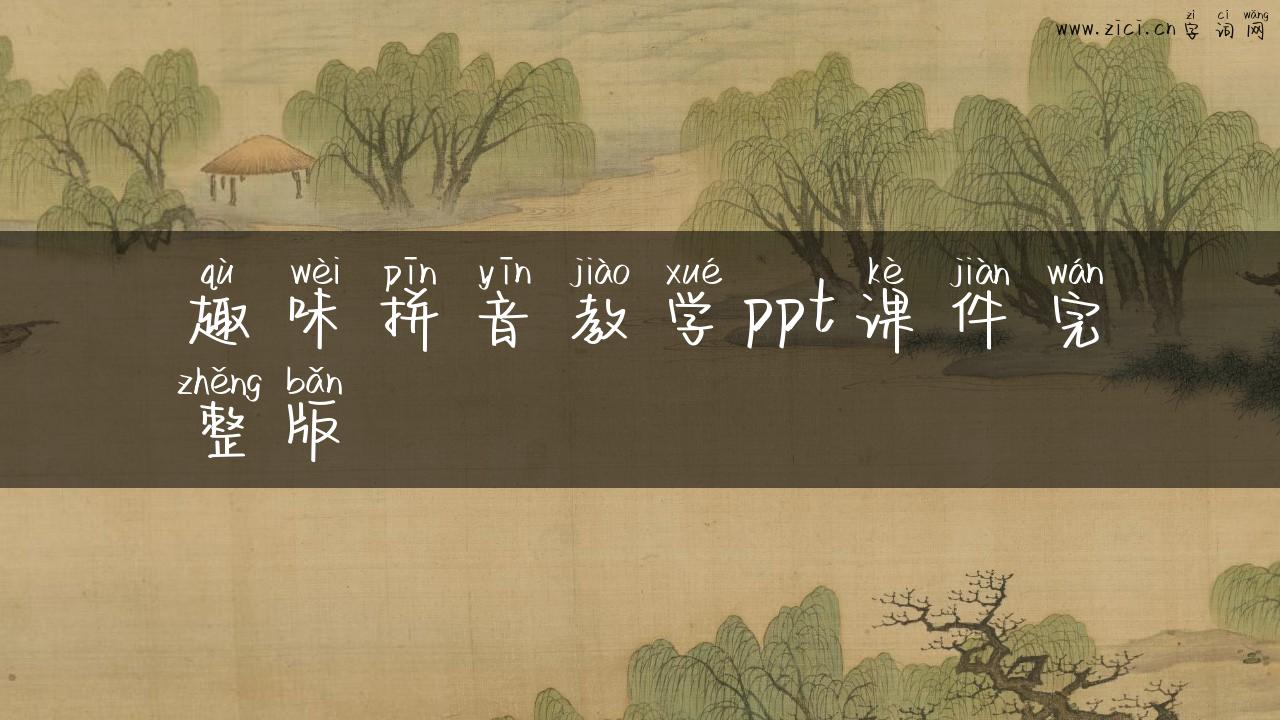 zì cí wǎng
www.zici.cn 字词网
qù wèi pīn yīn jiào xué kè jiàn wán
趣味拼音教学ppt课件完
zhěng bǎn
整版